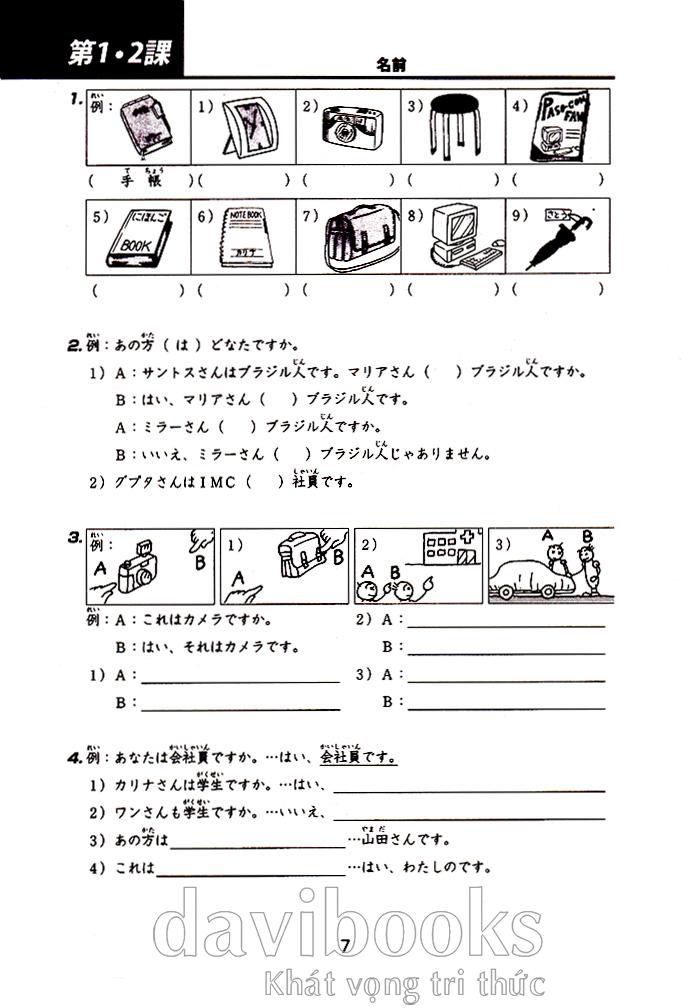 第1・2課
名前
1. 例： 1) 2) 3) 4)
PASO-COM FAN
( 手帳 )( ) ( ) ( ) ( )
5) 6) 7) 8) 9)
にほんご BOOK
NOTE BOOK カリナ
さとう
( ) ( ) ( ) ( ) ( )
2. 例：あの方（ は ）どなたですか。
1) A：サントスさんはブラジル人です。マリアさん（ ）ブラジル人ですか。
B：はい、マリアさん（ ）ブラジル人です。
A：ミラーさん（ ）ブラジル人ですか。
B：いいえ、ミラーさん（ ）ブラジル人じゃありません。
2) グプタさんはIMC（ ）社員です。
3. 例： A B 1) A B 2) A B 3) A B
例：A：これはカメラですか。
B：はい、それはカメラです。
1) A：
B：
2) A：
B：
3) A：
B：
4. 例：あなたは会社員ですか。…はい、会社員です。
1) カリナさんは学生ですか。…はい、
2) ワンさんも学生ですか。…いいえ、
3) あの方は …山田さんです。
4) これは …はい、わたしのです。
davibooks
7
Khát vọng tri thức